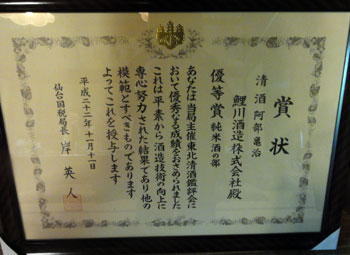 賞状
清酒 阿部亀治
鯉川酒造株式会社殿
優等賞 純米酒の部
あなたは当局主催東北清酒鑑評会に
おいて優秀なる成績をおさめられました
これは平素から酒造技術の向上に
専心努力された結果であり他の
模範とすべきものであります
よってこれを授与します
平成二十二年十一月十一日
仙台国税局長 岸英人